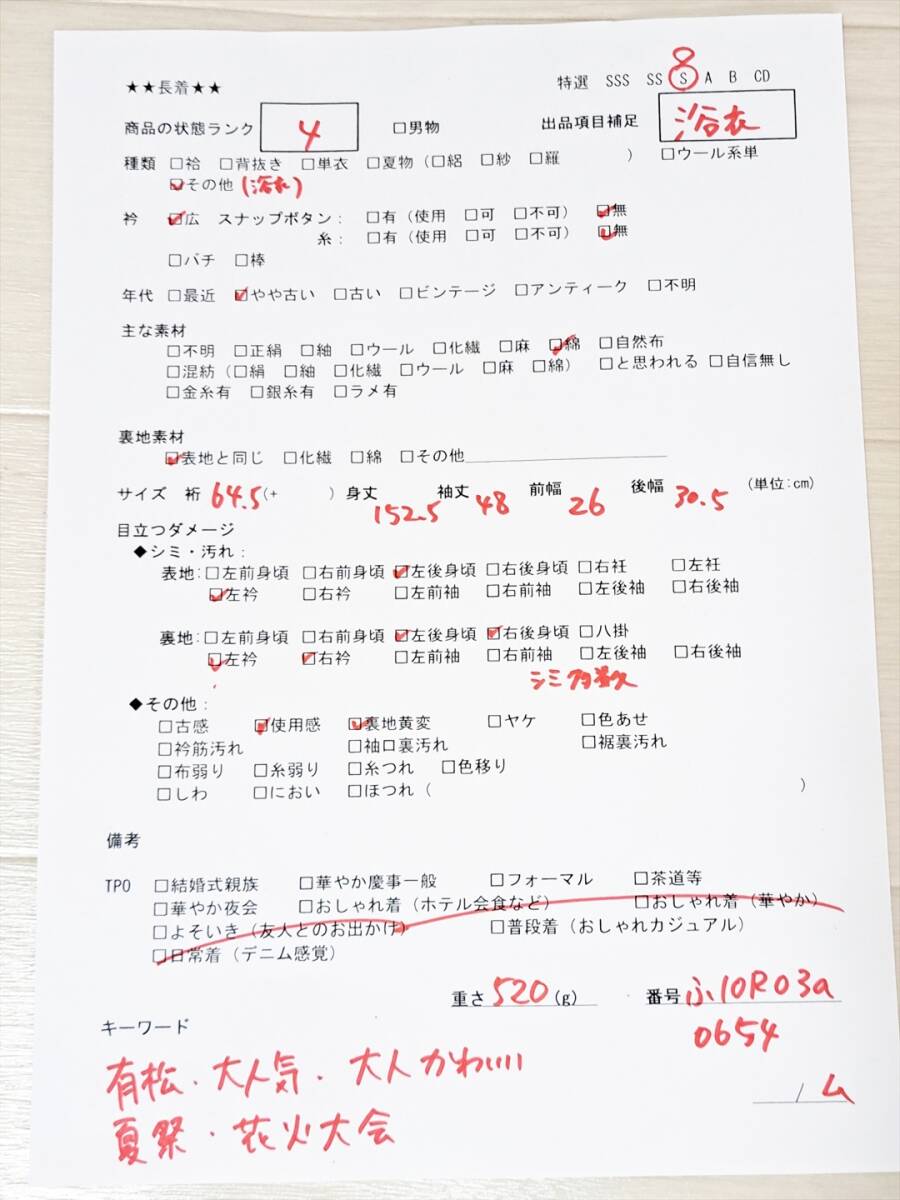 ★★長着★★
特選 SSS SS S A B CD
8
商品の状態ランク 4 □男物 出品項目補足 浴衣
種類 □袷 □背抜き □単衣 □夏物(□絽 □紗 □羅 ) □ウール系単
☑その他(浴衣)
衿 ☑広 スナップボタン: □有(使用 □可 □不可) ☑無
糸: □有(使用 □可 □不可) ☑無
□バチ □棒
年代 □最近 ☑やや古い □古い □ビンテージ □アンティーク □不明
主な素材
□不明 □正絹 □紬 □ウール □化繊 □麻 ☑綿 □自然布
□混紡(□絹 □紬 □化繊 □ウール □麻 □綿) □と思われる □自信無し
□金糸有 □銀糸有 □ラメ有
裏地素材
☑表地と同じ □化繊 □綿 □その他
サイズ 裄 64.5(+ ) 身丈 152.5 袖丈 48 前幅 26 後幅 30.5 (単位:cm)
目立つダメージ
◆シミ・汚れ:
表地:□左前身頃 □右前身頃 ☑左後身頃 □右後身頃 □右衽 □左衽
☑左衿 □右衿 □左前袖 □右前袖 □左後袖 □右後袖
裏地:□左前身頃 □右前身頃 ☑左後身頃 ☑右後身頃 □八掛
☑左衿 ☑右衿 □左前袖 □右前袖 □左後袖 □右後袖
シミ多数
◆その他:
□古感 ☑使用感 ☑裏地黄変 □ヤケ □色あせ
□衿筋汚れ □袖口裏汚れ □裾裏汚れ
□布弱り □糸弱り □糸つれ □色移り
□しわ □におい □ほつれ( )
備考
TPO □結婚式親族 □華やか慶事一般 □フォーマル □茶道等
□華やか夜会 □おしゃれ着(ホテル会食など) □おしゃれ着(華やか)
□よそいき(友人とのお出かけ) □普段着(おしゃれカジュアル)
□日常着(デニム感覚)
重さ 520(g) 番号 ふ10R03a
0654
キーワード
有松・大人気・大人かわいい
/ ム
夏祭・花火大会